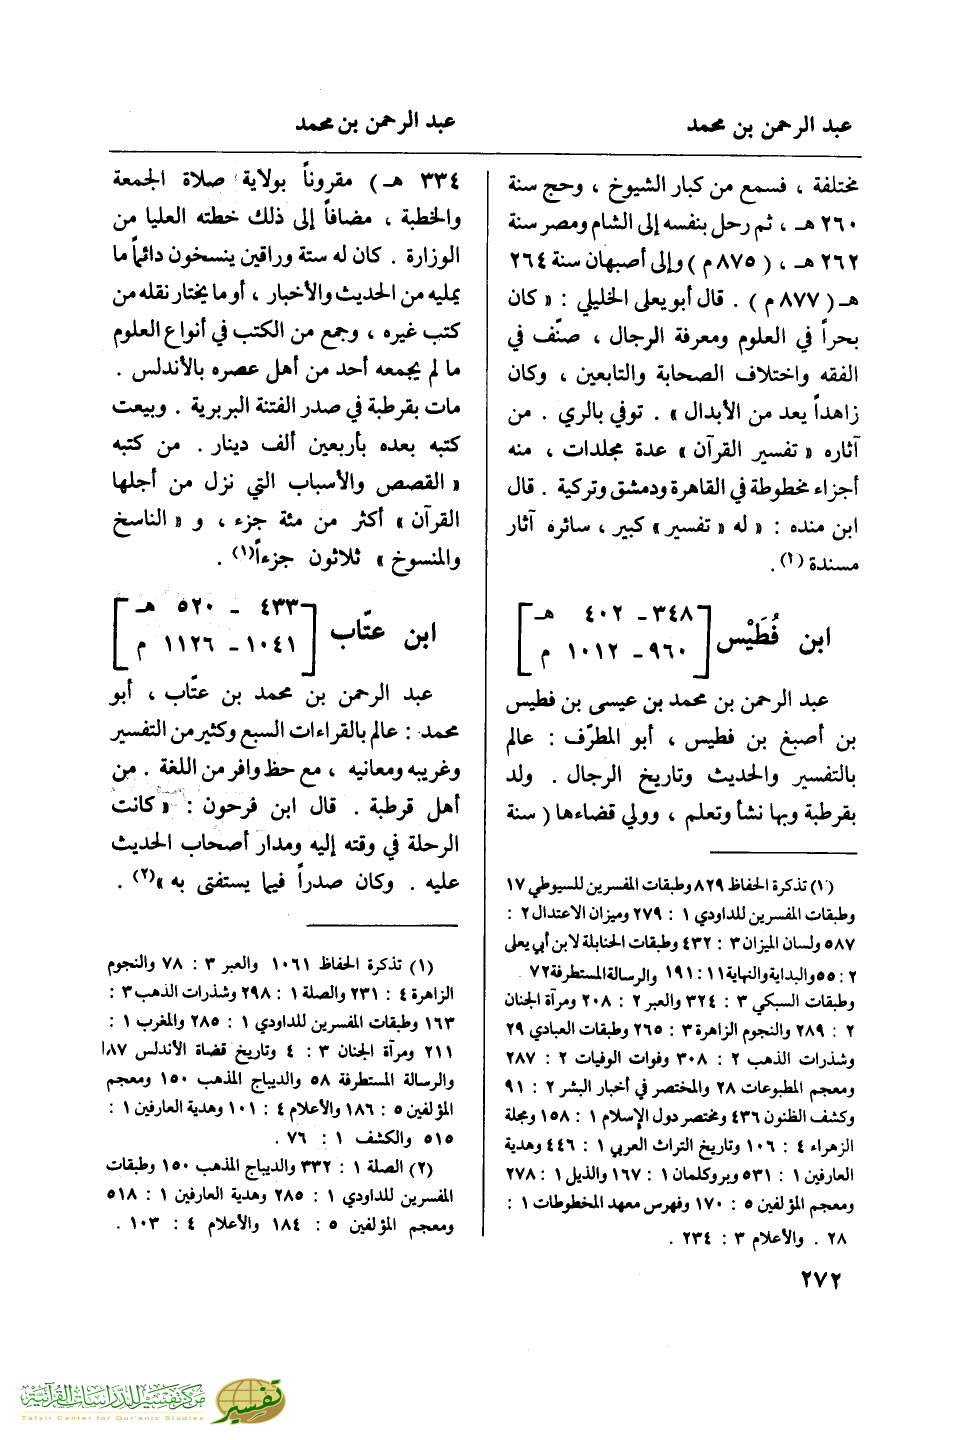 عبد الرحمن بن محمد
عبد الرحمن بن محمد
مختلفة ، فسمع من كبار الشيوخ ، وحج سنة
٢٦٠ هـ ، ثم رحل بنفسه إلى الشام ومصر سنة
٢٦٢ هـ ، ( ٨٧٥ م ) وإلى أصبهان سنة ٢٦٤
هـ ( ٨٧٧ م ) . قال أبو يعلى الخليلي : « كان
بحراً في العلوم ومعرفة الرجال ، صنّف في
الفقه واختلاف الصحابة والتابعين ، وكان
زاهداً يعد من الأبدال » . توفي بالري . من
آثاره « تفسير القرآن » عدة مجلدات ، منه
أجزاء مخطوطة في القاهرة ودمشق وتركية . قال
ابن منده : « له « تفسير » كبير ، سائره آثار
مسندة (١) .
ابن فُطَيْس [ ٣٤٨ - ٤٠٢ هـ
٩٦٠ - ١٠١٢ م ]
عبد الرحمن بن محمد بن عيسى بن فطيس
بن أصبغ بن فطيس ، أبو المطرّف : عالم
بالتفسير والحديث وتاريخ الرجال . ولد
بقرطبة وبها نشأ وتعلم ، وولي قضاءها ( سنة
(١) تذكرة الحفاظ ٨٢٩ وطبقات المفسرين للسيوطي ١٧
وطبقات المفسرين للداودي ١ : ٢٧٩ وميزان الاعتدال ٢ :
٥٨٧ ولسان الميزان ٣ : ٤٣٢ وطبقات الحنابلة لابن أبي يعلى
٢ : ٥٥ والبداية والنهاية ١١ : ١٩١ والرسالة المستطرفة ٧٢
وطبقات السبكي ٣ : ٣٢٤ والعبر ٢ : ٢٠٨ ومرآة الجنان
٢ : ٢٨٩ والنجوم الزاهرة ٣ : ٢٦٥ وطبقات العبادي ٢٩
وشذرات الذهب ٢ : ٣٠٨ وفوات الوفيات ٢ : ٢٨٧
ومعجم المطبوعات ٢٨ والمختصر في أخبار البشر ٢ : ٩١
وكشف الظنون ٤٣٦ ومختصر دول الإسلام ١ : ١٥٨ ومجلة
الزهراء ٤ : ١٠٦ وتاريخ التراث العربي ١ : ٤٤٦ وهدية
العارفين ١ : ٥٣١ وبروكلمان ١ : ١٦٧ والذيل ١ : ٢٧٨
ومعجم المؤلفين ٥ : ١٧٠ وفهرس معهد المخطوطات ١ :
٢٨ . والأعلام ٣ : ٢٣٤ .
٣٣٤ هـ ) مقروناً بولاية صلاة الجمعة
والخطبة ، مضافاً إلى ذلك خطته العليا من
الوزارة . كان له ستة وراقين ينسخون دائماً ما
يمليه من الحديث والأخبار ، أو ما يختار نقله من
كتب غيره ، وجمع من الكتب في أنواع العلوم
ما لم يجمعه أحد من أهل عصره بالأندلس .
مات بقرطبة في صدر الفتنة البربرية . وبيعت
كتبه بعده بأربعين ألف دينار . من كتبه
« القصص والأسباب التي نزل من أجلها
القرآن » أكثر من مئة جزء ، و « الناسخ
والمنسوخ » ثلاثون جزءاً(١) .
ابن عتّاب [ ٤٣٣ - ٥٢٠ هـ
١٠٤١ - ١١٢٦ م ]
عبد الرحمن بن محمد بن عتّاب ، أبو
محمد : عالم بالقراءات السبع وكثير من التفسير
وغريبه ومعانيه ، مع حظ وافر من اللغة . من
أهل قرطبة . قال ابن فرحون : « كانت
الرحلة في وقته إليه ومدار أصحاب الحديث
عليه . وكان صدراً فيما يستفتى به »(٢) .
(١) تذكرة الحفاظ ١٠٦١ والعبر ٣ : ٧٨ والنجوم
الزاهرة ٤ : ٢٣١ والصلة ١ : ٢٩٨ وشذرات الذهب ٣ :
١٦٣ وطبقات المفسرين للداودي ١ : ٢٨٥ والمغرب ١ :
٢١١ ومرآة الجنان ٣ : ٤ وتاريخ قضاة الأندلس ٨٧
والرسالة المستطرفة ٥٨ والديباج المذهب ١٥٠ ومعجم
المؤلفين ٥ : ١٨٦ والأعلام ٤ : ١٠١ وهدية العارفين ١ :
٥١٥ والكشف ١ : ٧٦ .
(٢) الصلة ١ : ٣٣٢ والديباج المذهب ١٥٠ وطبقات
المفسرين للداودي ١ : ٢٨٥ وهدية العارفين ١ : ٥١٨
ومعجم المؤلفين ٥ : ١٨٤ والأعلام ٤ : ١٠٣ .
٢٧٢
مركز تفسير للدراسات القرآنية
Tafsir Center for Qur'anic Studies
تفسير